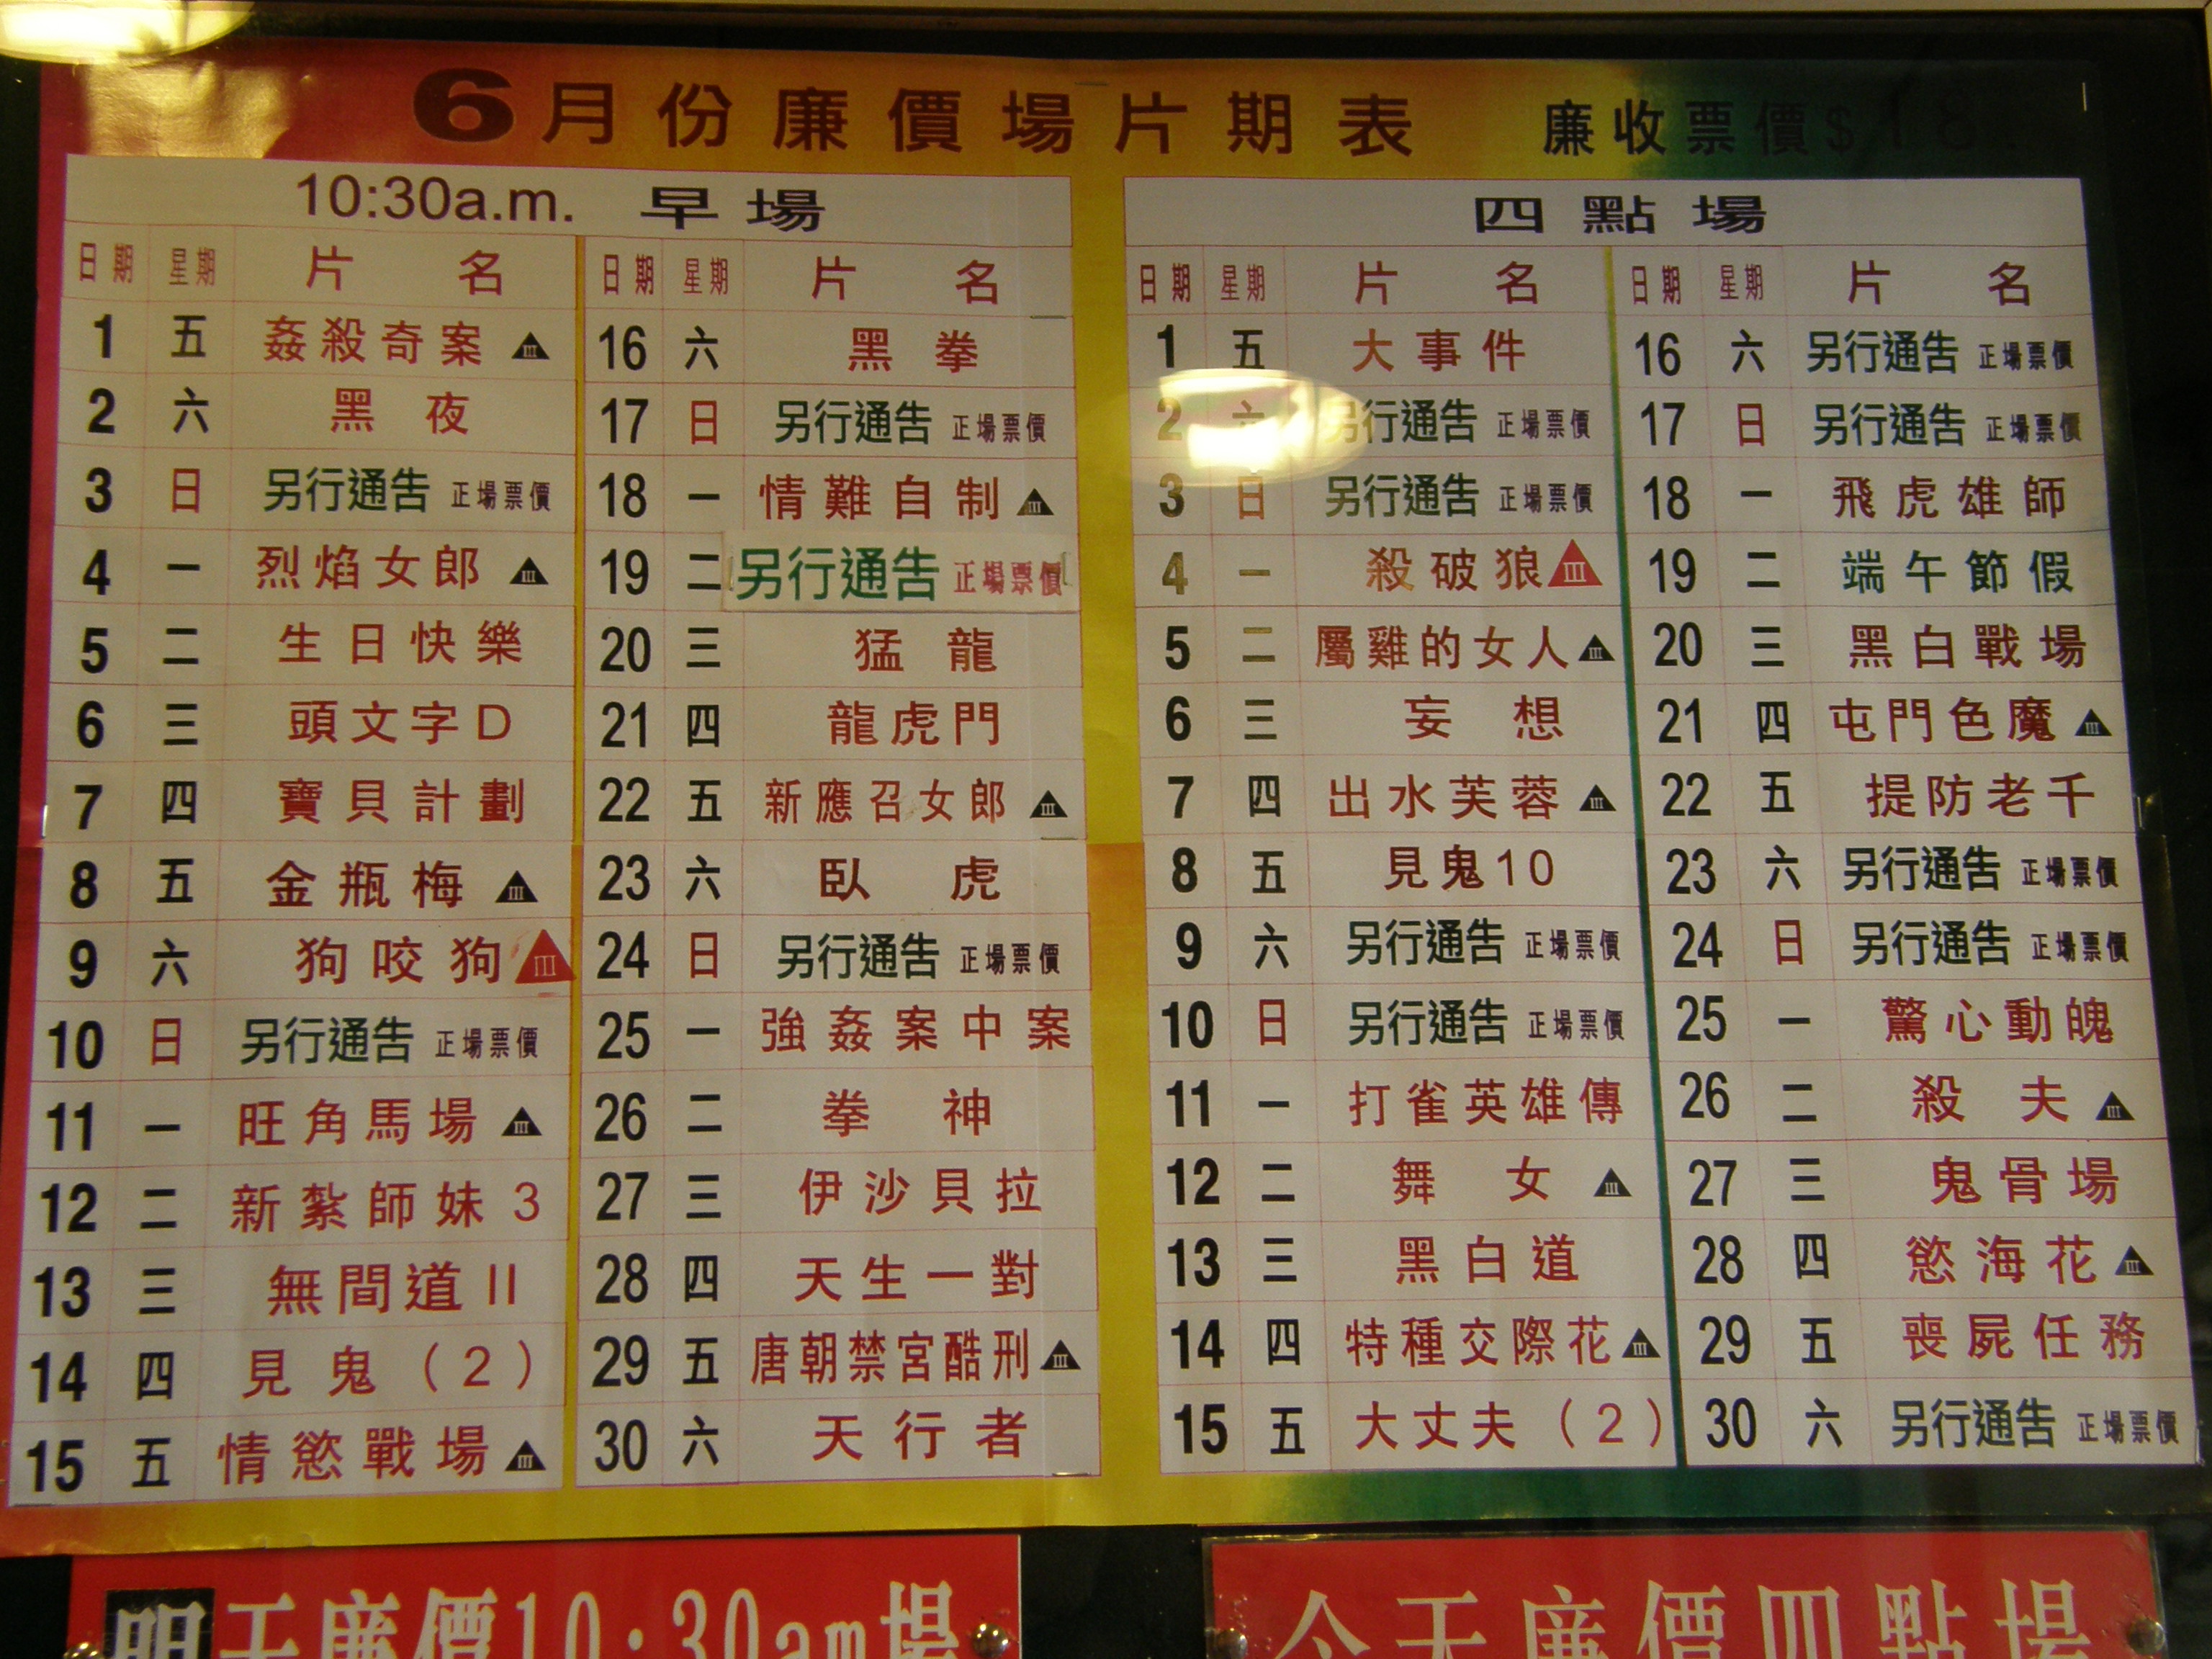 6月份廉價場片期表 廉收票價$18
10:30a.m. 早場
日期 星期 片名
1 五 姦殺奇案 III
2 六 黑夜
3 日 另行通告 正場票價
4 一 烈焰女郎 III
5 二 生日快樂
6 三 頭文字D
7 四 寶貝計劃
8 五 金瓶梅 III
9 六 狗咬狗 III
10 日 另行通告 正場票價
11 一 旺角馬場 III
12 二 新紮師妹3
13 三 無間道II
14 四 見鬼（2）
15 五 情慾戰場 III
日期 星期 片名
16 六 黑拳
17 日 另行通告 正場票價
18 一 情難自制 III
19 二 另行通告 正場票價
20 三 猛龍
21 四 龍虎門
22 五 新應召女郎 III
23 六 臥虎
24 日 另行通告 正場票價
25 一 強姦案中案
26 二 拳神
27 三 伊沙貝拉
28 四 天生一對
29 五 唐朝禁宮酷刑 III
30 六 天行者
四點場
日期 星期 片名
1 五 大事件
2 六 另行通告 正場票價
3 日 另行通告 正場票價
4 一 殺破狼 III
5 二 屬雞的女人 III
6 三 妄想
7 四 出水芙蓉 III
8 五 見鬼10
9 六 另行通告 正場票價
10 日 另行通告 正場票價
11 一 打雀英雄傳
12 二 舞女 III
13 三 黑白道
14 四 特種交際花 III
15 五 大丈夫（2）
日期 星期 片名
16 六 另行通告 正場票價
17 日 另行通告 正場票價
18 一 飛虎雄師
19 二 端午節假
20 三 黑白戰場
21 四 屯門色魔 III
22 五 提防老千
23 六 另行通告 正場票價
24 日 另行通告 正場票價
25 一 驚心動魄
26 二 殺夫 III
27 三 鬼骨場
28 四 慾海花 III
29 五 喪屍任務
30 六 另行通告 正場票價
明天廉價10:30am場
今天廉價四點場